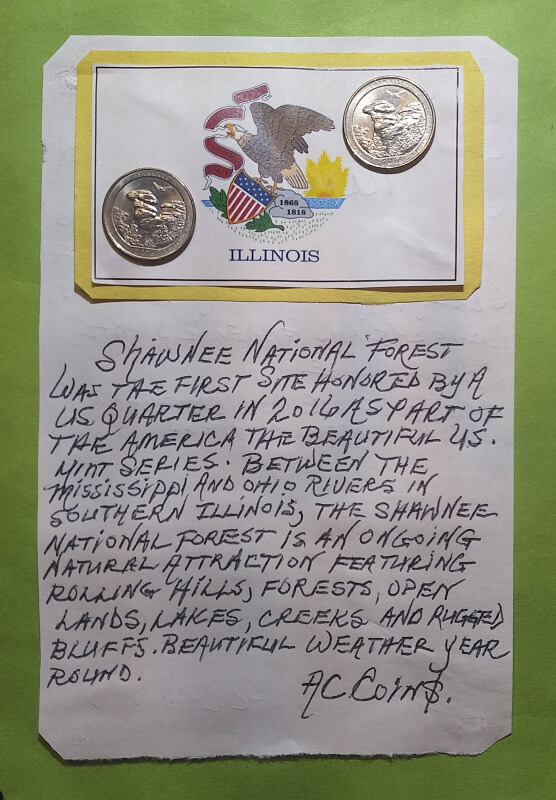 1868
1818
ILLINOIS
SHAWNEE NATIONAL FOREST
WAS THE FIRST SITE HONORED BY A
US QUARTER IN 2016 AS PART OF
THE AMERICA THE BEAUTIFUL U.S.
MINT SERIES. BETWEEN THE
MISSISSIPPI AND OHIO RIVERS IN
SOUTHERN ILLINOIS, THE SHAWNEE
NATIONAL FOREST IS AN ONGOING
NATURAL ATTRACTION FEATURING
ROLLING HILLS, FORESTS, OPEN
LANDS, LAKES, CREEKS AND RUGGED
BLUFFS. BEAUTIFUL WEATHER YEAR
ROUND.
AC COIN$.